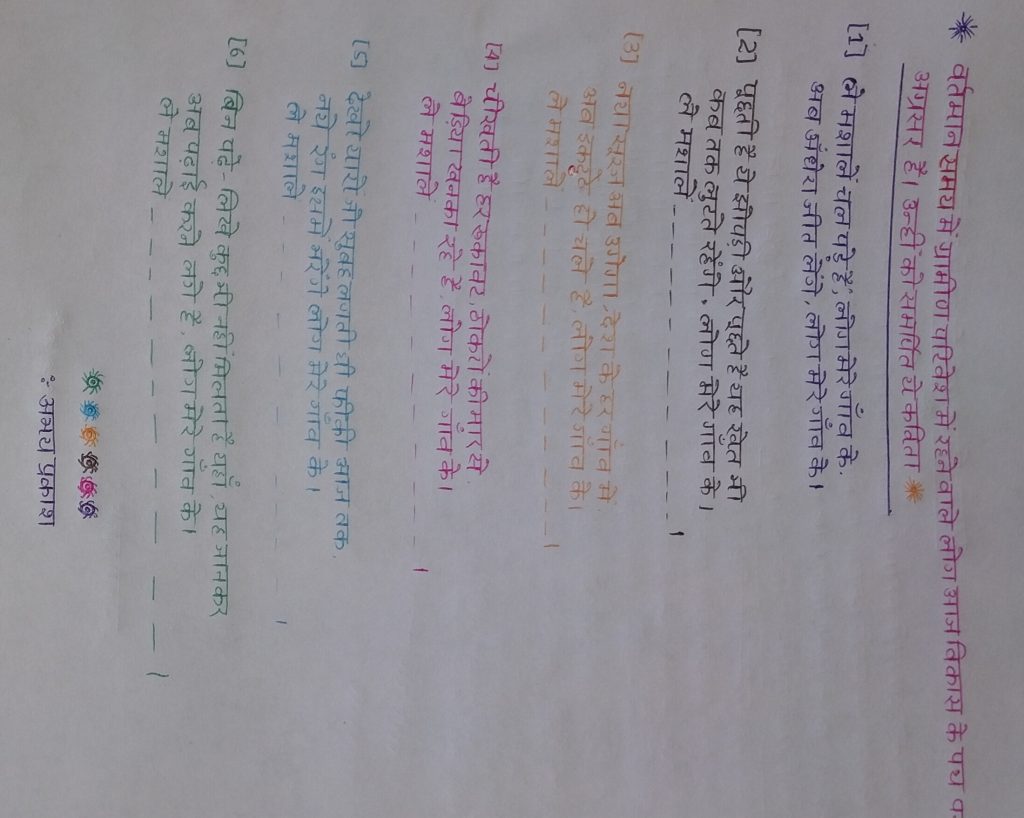 * वर्तमान समय में ग्रामीण परिवेश में रहने वाले लोग आज विकास के पथ
अग्रसर हैं। उन्हीं को समर्पित ये कविता *
[1] ले मशालें चल पड़े हैं, लोग मेरे गाँव के.
अब अंधेरा जीत लेंगे, लोग मेरे गाँव के।
[2] पूछती है झोपड़ी और पूछते हैं यह खेत भी
कब तक लुटते रहेंगे, लोग मेरे गाँव के।
ले मशालें - - - - - - - - - - ।
[3] नया सूरज अब उगेगा, देश के हर गाँव में.
अब इकट्ठे हो चले हैं, लोग मेरे गाँव के।
ले मशाले - - - - - - - - - - ।
[4] चीखती है हर रुकावट, ठोकरों की मार से.
बेड़िया खनका रहे हैं, लोग मेरे गाँव के।
ले मशालें - - - - - - - - - - ।
[5] देखो यारों जो सुबह लगती थी फीकी आज तक.
नये रंग इसमें भरेंगे लोग मेरे गाँव के।
ले मशाले - - - - - - - - - - ।
[6] बिन पढ़े-लिखे कुछ भी नहीं मिलता है यहाँ, यह जानकर
अब पढ़ाई करने लगे हैं, लोग मेरे गाँव के।
ले मशाले - - - - - - - - - - ।
अभय प्रकाश